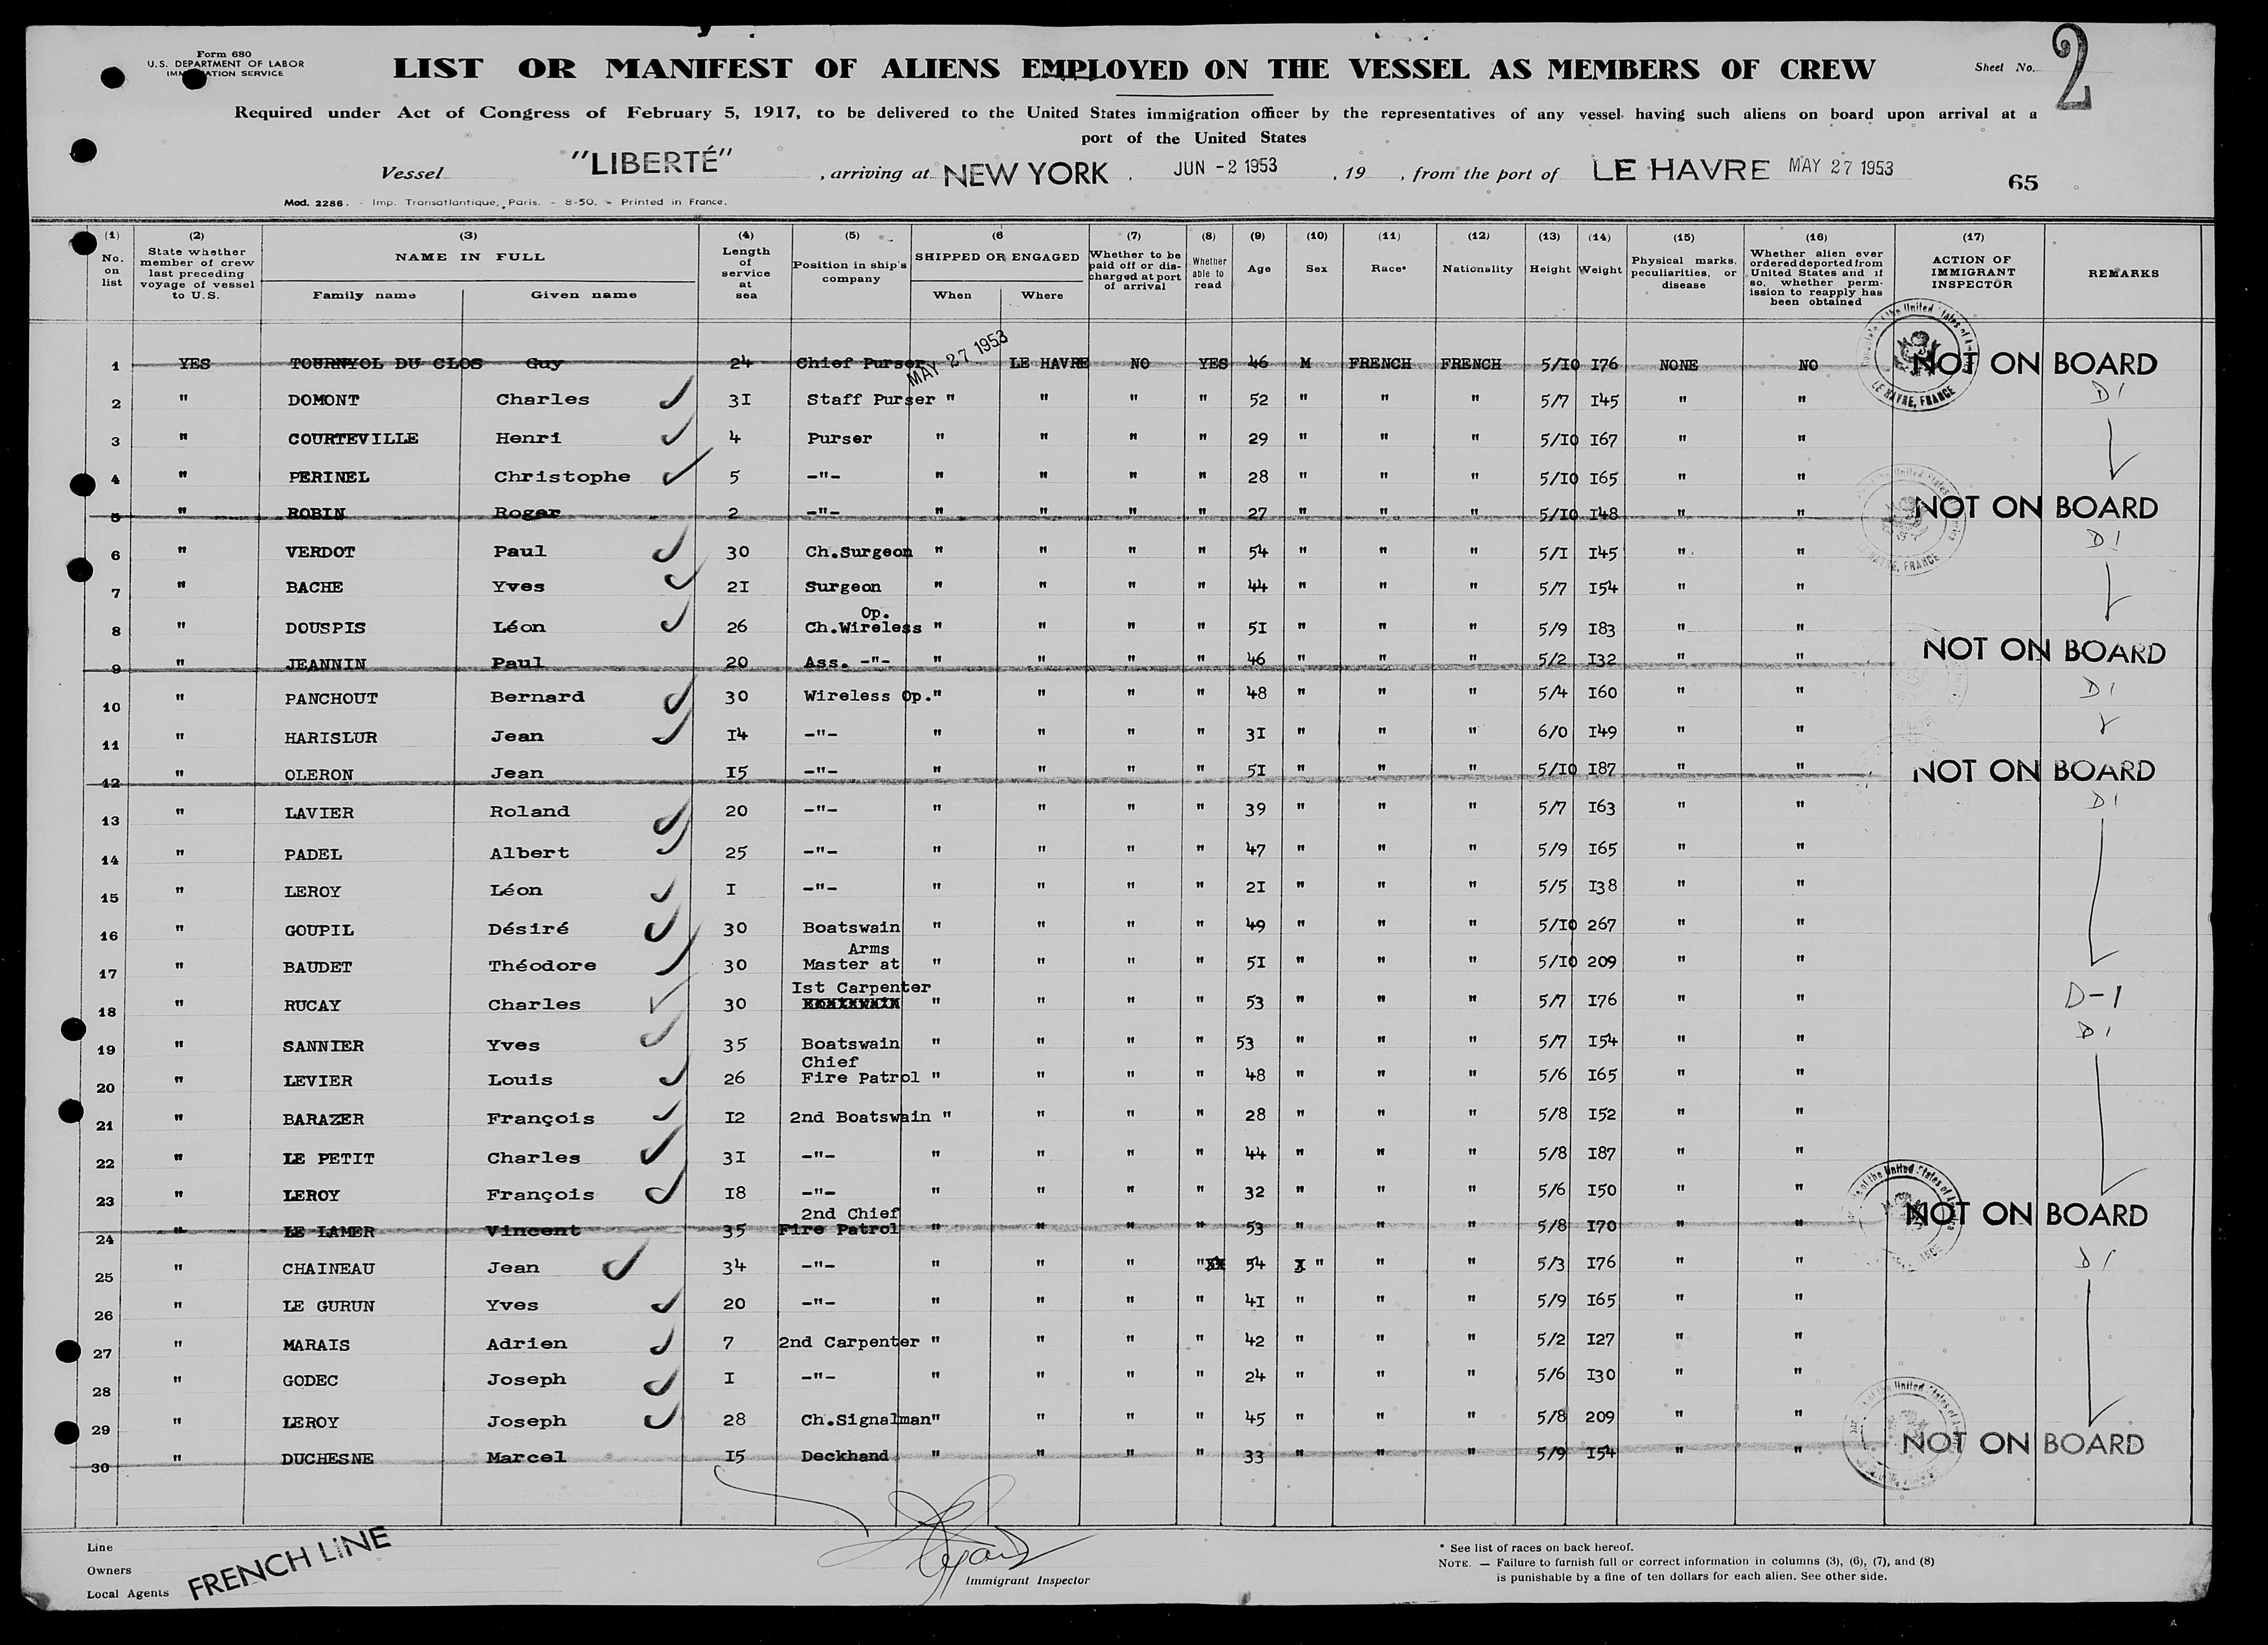 Form 680
U.S. DEPARTMENT OF LABOR
IMMIGRATION SERVICE
LIST OR MANIFEST OF ALIENS EMPLOYED ON THE VESSEL AS MEMBERS OF CREW
Sheet No. 2
Required under Act of Congress of February 5, 1917, to be delivered to the United States immigration officer by the representatives of any vessel having such aliens on board upon arrival at a
port of the United States
Vessel "LIBERTÉ" , arriving at NEW YORK . JUN -2 1953 , 19 , from the port of LE HAVRE MAY 27 1953
65
Mod. 2286. - Imp. Transatlantique, Paris. - 8-50. - Printed in France.
(1) No. on list (2) State whether member of crew last preceding voyage of vessel to U.S. (3) NAME IN FULL Family name Given name (4) Length of service at sea (5) Position in ship's company (6 SHIPPED OR ENGAGED When Where (7) Whether to be paid off or discharged at port of arrival (8) Whether able to read (9) Age (10) Sex (11) Race* (12) Nationality (13) Height (14) Weight (15) Physical marks, peculiarities, or disease (16) Whether alien ever ordered deported from United States and if so, whether permission to reapply has been obtained (17) ACTION OF IMMIGRANT INSPECTOR REMARKS
1 YES TOURNYOL DU CLOS Guy 24 Chief Purser MAY 27 1953 LE HAVRE NO YES 46 M FRENCH FRENCH 5/I0 I76 NONE NO NOT ON BOARD
2 " DOMONT Charles 3I Staff Purser " " " " 52 " " " 5/7 I45 " " D1
3 " COURTEVILLE Henri 4 Purser " " " " 29 " " " 5/I0 I67 " "
4 " PERINEL Christophe 5 -"- " " " " 28 " " " 5/I0 I65 " "
5 " ROBIN Roger 2 -"- " " " " 27 " " " 5/I0 I48 " " NOT ON BOARD
6 " VERDOT Paul 30 Ch.Surgeon " " " " 54 " " " 5/I I45 " " D1
7 " BACHE Yves 2I Surgeon " " " " 44 " " " 5/7 I54 " "
8 " DOUSPIS Léon 26 Ch.Wireless Op. " " " " 5I " " " 5/9 I83 " "
9 " JEANNIN Paul 20 Ass. -"- " " " " 46 " " " 5/2 I32 " " NOT ON BOARD
10 " PANCHOUT Bernard 30 Wireless Op. " " " " 48 " " " 5/4 I60 " " D1
11 " HARISLUR Jean I4 -"- " " " " 3I " " " 6/0 I49 " "
12 " OLERON Jean I5 -"- " " " " 5I " " " 5/I0 I87 " " NOT ON BOARD
13 " LAVIER Roland 20 -"- " " " " 39 " " " 5/7 I63 " " D1
14 " PADEL Albert 25 -"- " " " " 47 " " " 5/9 I65 " "
15 " LEROY Léon I -"- " " " " 2I " " " 5/5 I38 " "
16 " GOUPIL Désiré 30 Boatswain " " " " 49 " " " 5/I0 267 " "
17 " BAUDET Théodore 30 Master at Arms " " " " 5I " " " 5/I0 209 " "
18 " RUCAY Charles 30 Ist Carpenter " " " " 53 " " " 5/7 I76 " " D-1
19 " SANNIER Yves 35 Boatswain " " " " 53 " " " 5/7 I54 " " D1
20 " LEVIER Louis 26 Chief Fire Patrol " " " " 48 " " " 5/6 I65 " "
21 " BARAZER François I2 2nd Boatswain " " " " 28 " " " 5/8 I52 " "
22 " LE PETIT Charles 3I -"- " " " " 44 " " " 5/8 I87 " "
23 " LEROY François I8 -"- " " " " 32 " " " 5/6 I50 " "
24 " LE LAMER Vincent 35 2nd Chief Fire Patrol " " " " 53 " " " 5/8 I70 " " NOT ON BOARD
25 " CHAINEAU Jean 34 -"- " " " " 54 " " " 5/3 I76 " " D1
26 " LE GURUN Yves 20 -"- " " " " 4I " " " 5/9 I65 " "
27 " MARAIS Adrien 7 2nd Carpenter " " " " 42 " " " 5/2 I27 " "
28 " GODEC Joseph I -"- " " " " 24 " " " 5/6 I30 " "
29 " LEROY Joseph 28 Ch.Signalman " " " " 45 " " " 5/8 209 " "
30 " DUCHESNE Marcel I5 Deckhand " " " " 33 " " " 5/9 I54 " " NOT ON BOARD
Line
Owners
Local Agents
FRENCH LINE
Immigrant Inspector
* See list of races on back hereof.
NOTE. — Failure to furnish full or correct information in columns (3), (6), (7), and (8)
is punishable by a fine of ten dollars for each alien. See other side.